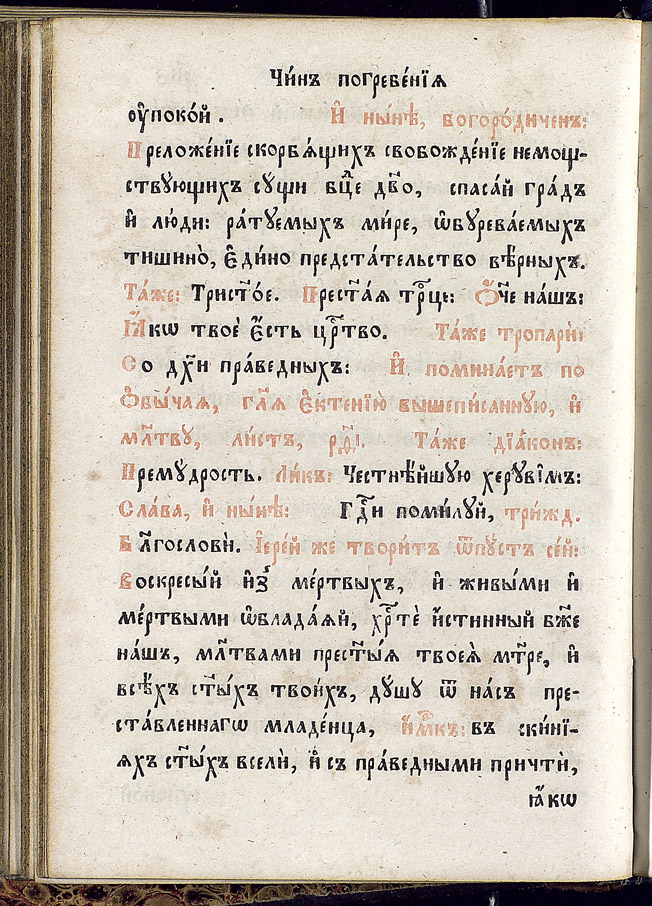 Чи́нъ погребе́нїѧ
оу҆поко́й. И҆ ны́нѣ, богоро́диченъ:
Преложе́нїе скорбѧ́щихъ свобожде́нїе немощ-
ствꙋющихъ сꙋщи бц҃е дв҃о, спаса́й гра́дъ
и҆ лю́ди: ра́тꙋемыхъ ми́ре, ѡ҆бꙋрева́емыхъ
тишино̀, є҆ди́но предста́тельство вѣ́рныхъ.
Та́же: Трист҃о́е. Прест҃а́ѧ трⷪ҇це: Ѻ҆́ч҃е на́шъ:
Ꙗ҆́кѡ твоѐ є҆́сть црⷭ҇тво. Та́же тропарѝ:
Со дх҃и пра́ведныхъ: И҆ помина́етъ по
ѻ҆бы́чаѧ, гл҃ѧ є҆ктенїю̀ вышепи́саннꙋю, и҆
мл҃твꙋ, ли́стъ, рд҃і. Та́же дїа́конъ:
Премꙋ́дрость. Ли́къ: Честнѣ́йшꙋю херꙋві́мъ:
Сла́ва, и҆ ны́нѣ: Гдⷭ҇и поми́лꙋй, три́жд.
Бл҃гословѝ. І҆ере́й же твори́тъ ѿпꙋ́стъ се́й:
Воскресы́й и҆з̾ ме́ртвыхъ, и҆ живы́ми и҆
ме́ртвыми ѡ҆блада́ѧй, хрⷭ҇тѐ и҆́стинный бж҃е
на́шъ, мл҃твами прест҃ы́ѧ твоеѧ̀ мт҃ре, и҆
всѣ́хъ ст҃ы́хъ твои́хъ, дꙋ́шꙋ ѿ на́съ пре-
ста́вленнагѡ младе́нца, и҆́м҃къ: въ ски́нї-
ѧхъ ст҃ы́хъ вселѝ, и҆ съ пра́ведными причтѝ,
ꙗ҆́кѡ